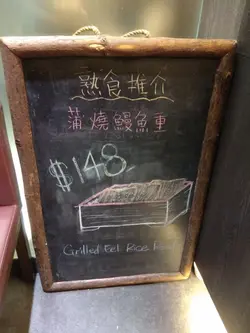 熟食推介
蒲燒鰻魚重
$148
Grilled Eel Rice